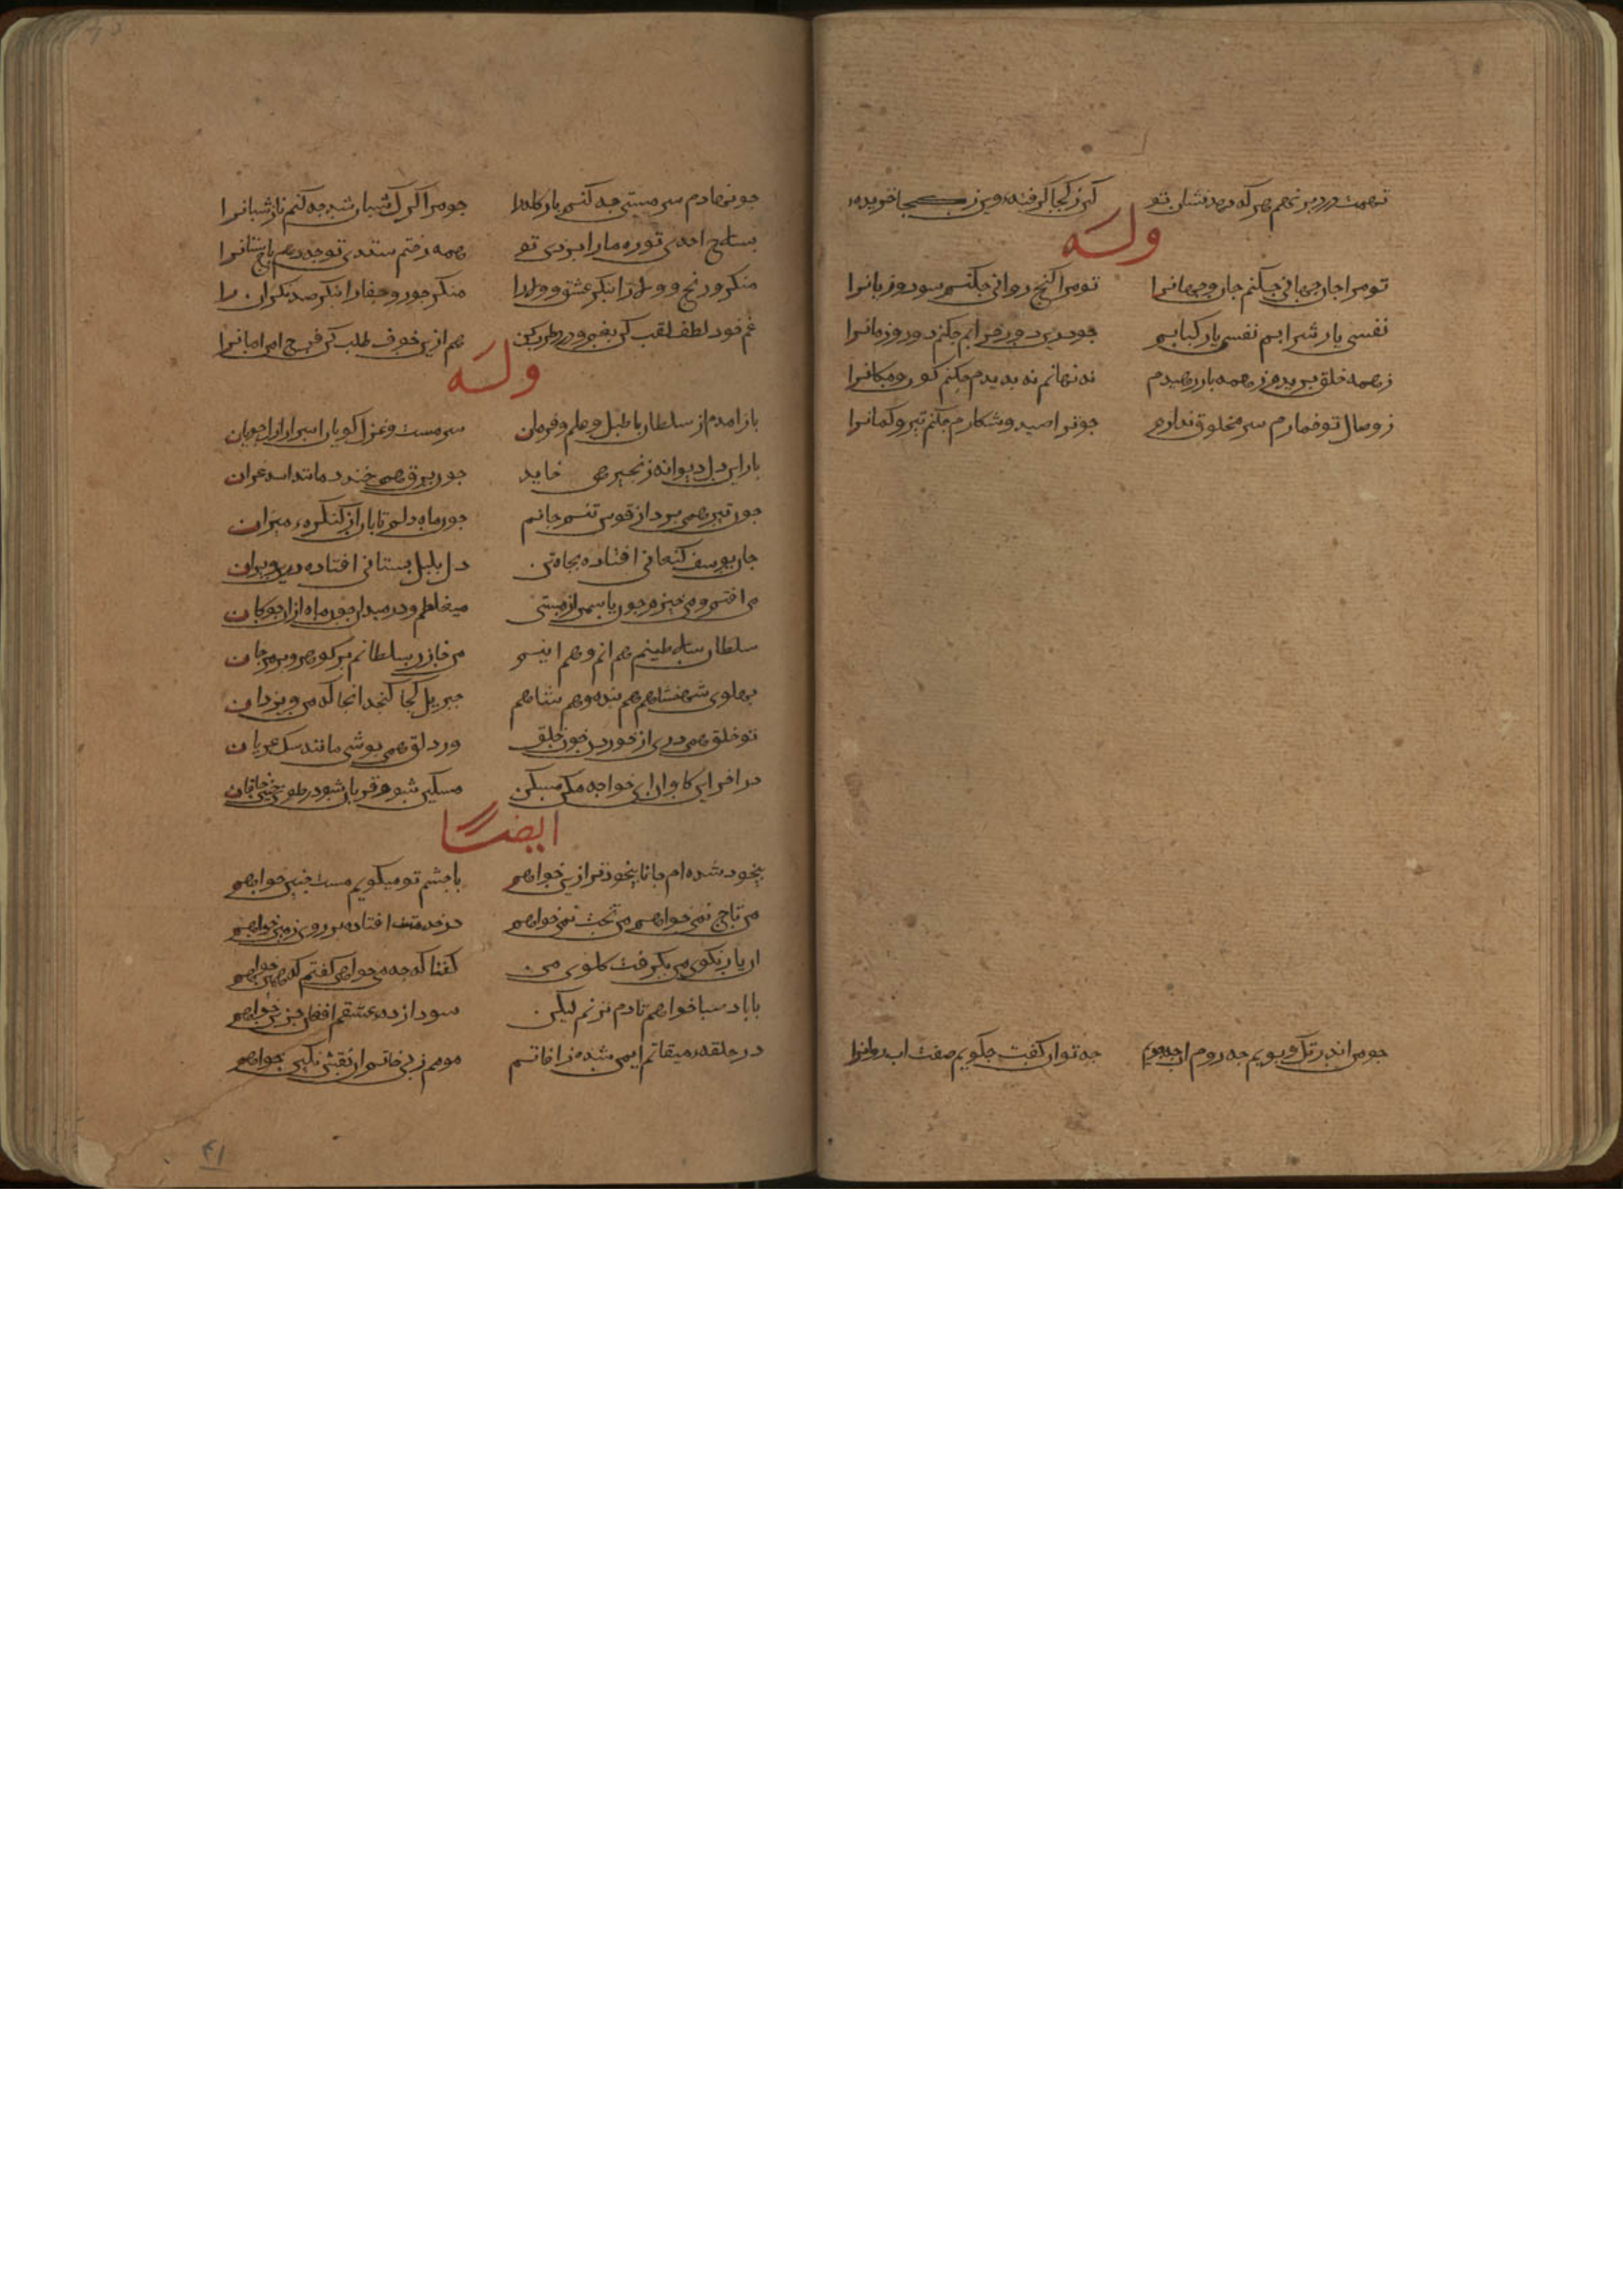 تهمت دزد برنهم هر که دهد نشان تو کین ز کجا گرفته وین ز کجا خریده
وله
تو مرا جان و جهانی چکنم جان و جهانرا تو مرا کنج روانی چکنم سود و زیانرا
نفسی یار شرابم نفسی یار کبابم جو درین دور خرابم چکنم دور و زمانرا
ز همه خلق بریدم ز همه باز رهیدم نه نهانم نه بدیدم چکنم کون و مکانرا
ز وصال تو خمارم سر مخلوق ندارم جو ترا صید و شکارم چکنم تیر و کمانرا
جو من اندر تک جویم جه روم اب جه جویم جه توان کفت جکویم صفت اب روانرا
جو نهادم سر مستی جه کشم بار کله را جو مرا کرک شبان شد جه کشم ناز شبانرا
بسلاح احدی تو ره مارا بزدی تو همه رختم ستدی تو جه دهم باج ستانرا
منکر رنج و بلا را بنکر عشق و ولا را منکر جور و جفا را بنکر صد نکران را
غم خود لطف لقب کن ز غم و درد طرب کن هم ازین خوف طلب کن فرح امن امانرا
وله
باز امدم از سلطان با طبل و علم و فرمان سرمست و غزل کویان اسرار ازل جویان
بار این دل دیوانه زنجیر همی خاید جون برق همی خندد مانند اسد غران
جون تیر همی برد از قوس تنم جانم جون ماه دلم تابان از کنکره میزان
جان یوسف کنعانی افتاده بچاه تن دل بلبل بستانی افتاده درین ویران
می افتم و می خیزم جون یاسمن از مستی میغلطم در میدان جون ماه از ان جوکان
سلطان سلاطینم هم انم و هم اینم من خازن سلطانم بر کوهر و بر مرجان
بهلوی شهنشاهم هم بنده و هم شاهم جبریل کجا کنجد انجا که من و یزدان
تو خلق همی دری از خوردن خون خلق ور دلق همی بوشی مانند سک عریان
در اخر این کاوان ای خواجه مکن مسکن مسکین شو و قربان شو در طوی جنین خاقان
ایضا
بیخود شده ام جانا بیخودتر ازین خواهم با جشم تو میکویم مست جنین خواهم
من تاج نمی خواهم من تخت نمی خواهم در خدمتت افتاده بر روی زمین خواهم
ان یار نکوی من بکرفت کلوی من کفتا که جه می خواهی کفتم که همین خواهم
با باد صبا خواهم تا دم بزنم لیکن سودا زده عشقم افغان حزین خواهم
در حلقه میقاتم ایمن شده ز افاتم مومم ز بی خاتم ان نقش نکین خواهم
۴۱